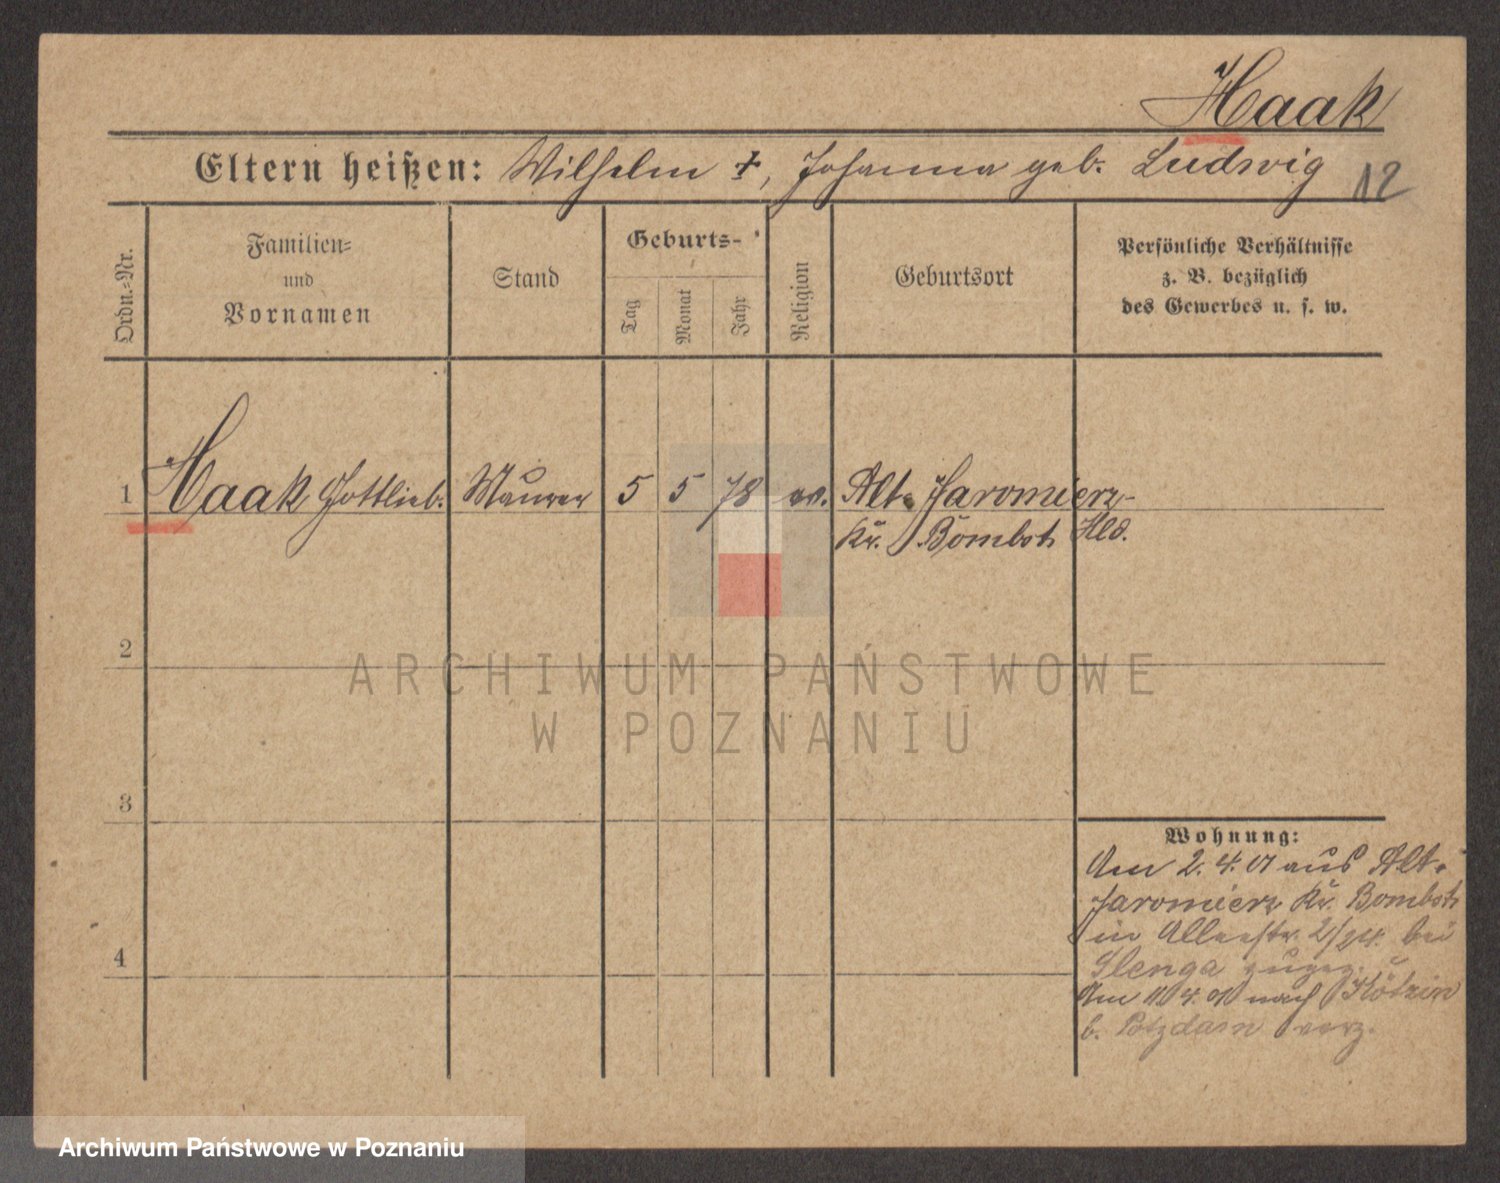 Haak
Eltern heißen: Wilhelm †, Johanna geb. Ludwig 12
Ordn.-Nr.
Familien-
und
Vornamen
Stand
Geburts-
Tag
Monat
Jahr
Religion
Geburtsort
Persönliche Verhältnisse
z. B. bezüglich
des Gewerbes u. s. w.
1 Haak Gottlieb. Maurer 5 5 78 ev. Alt-Jaromierz-
Kr. Bombst Hld.
2
ARCHIWUM PAŃSTWOWE
W POZNANIU
3
Wohnung:
Am 2. 4. 01 aus Alt-
Jaromierz Kr. Bombst
in Alleestr. 2/24. bei
zugez.
4
Am 11. 4. 01 nach
b. Potzdam verz.
Archiwum Państwowe w Poznaniu